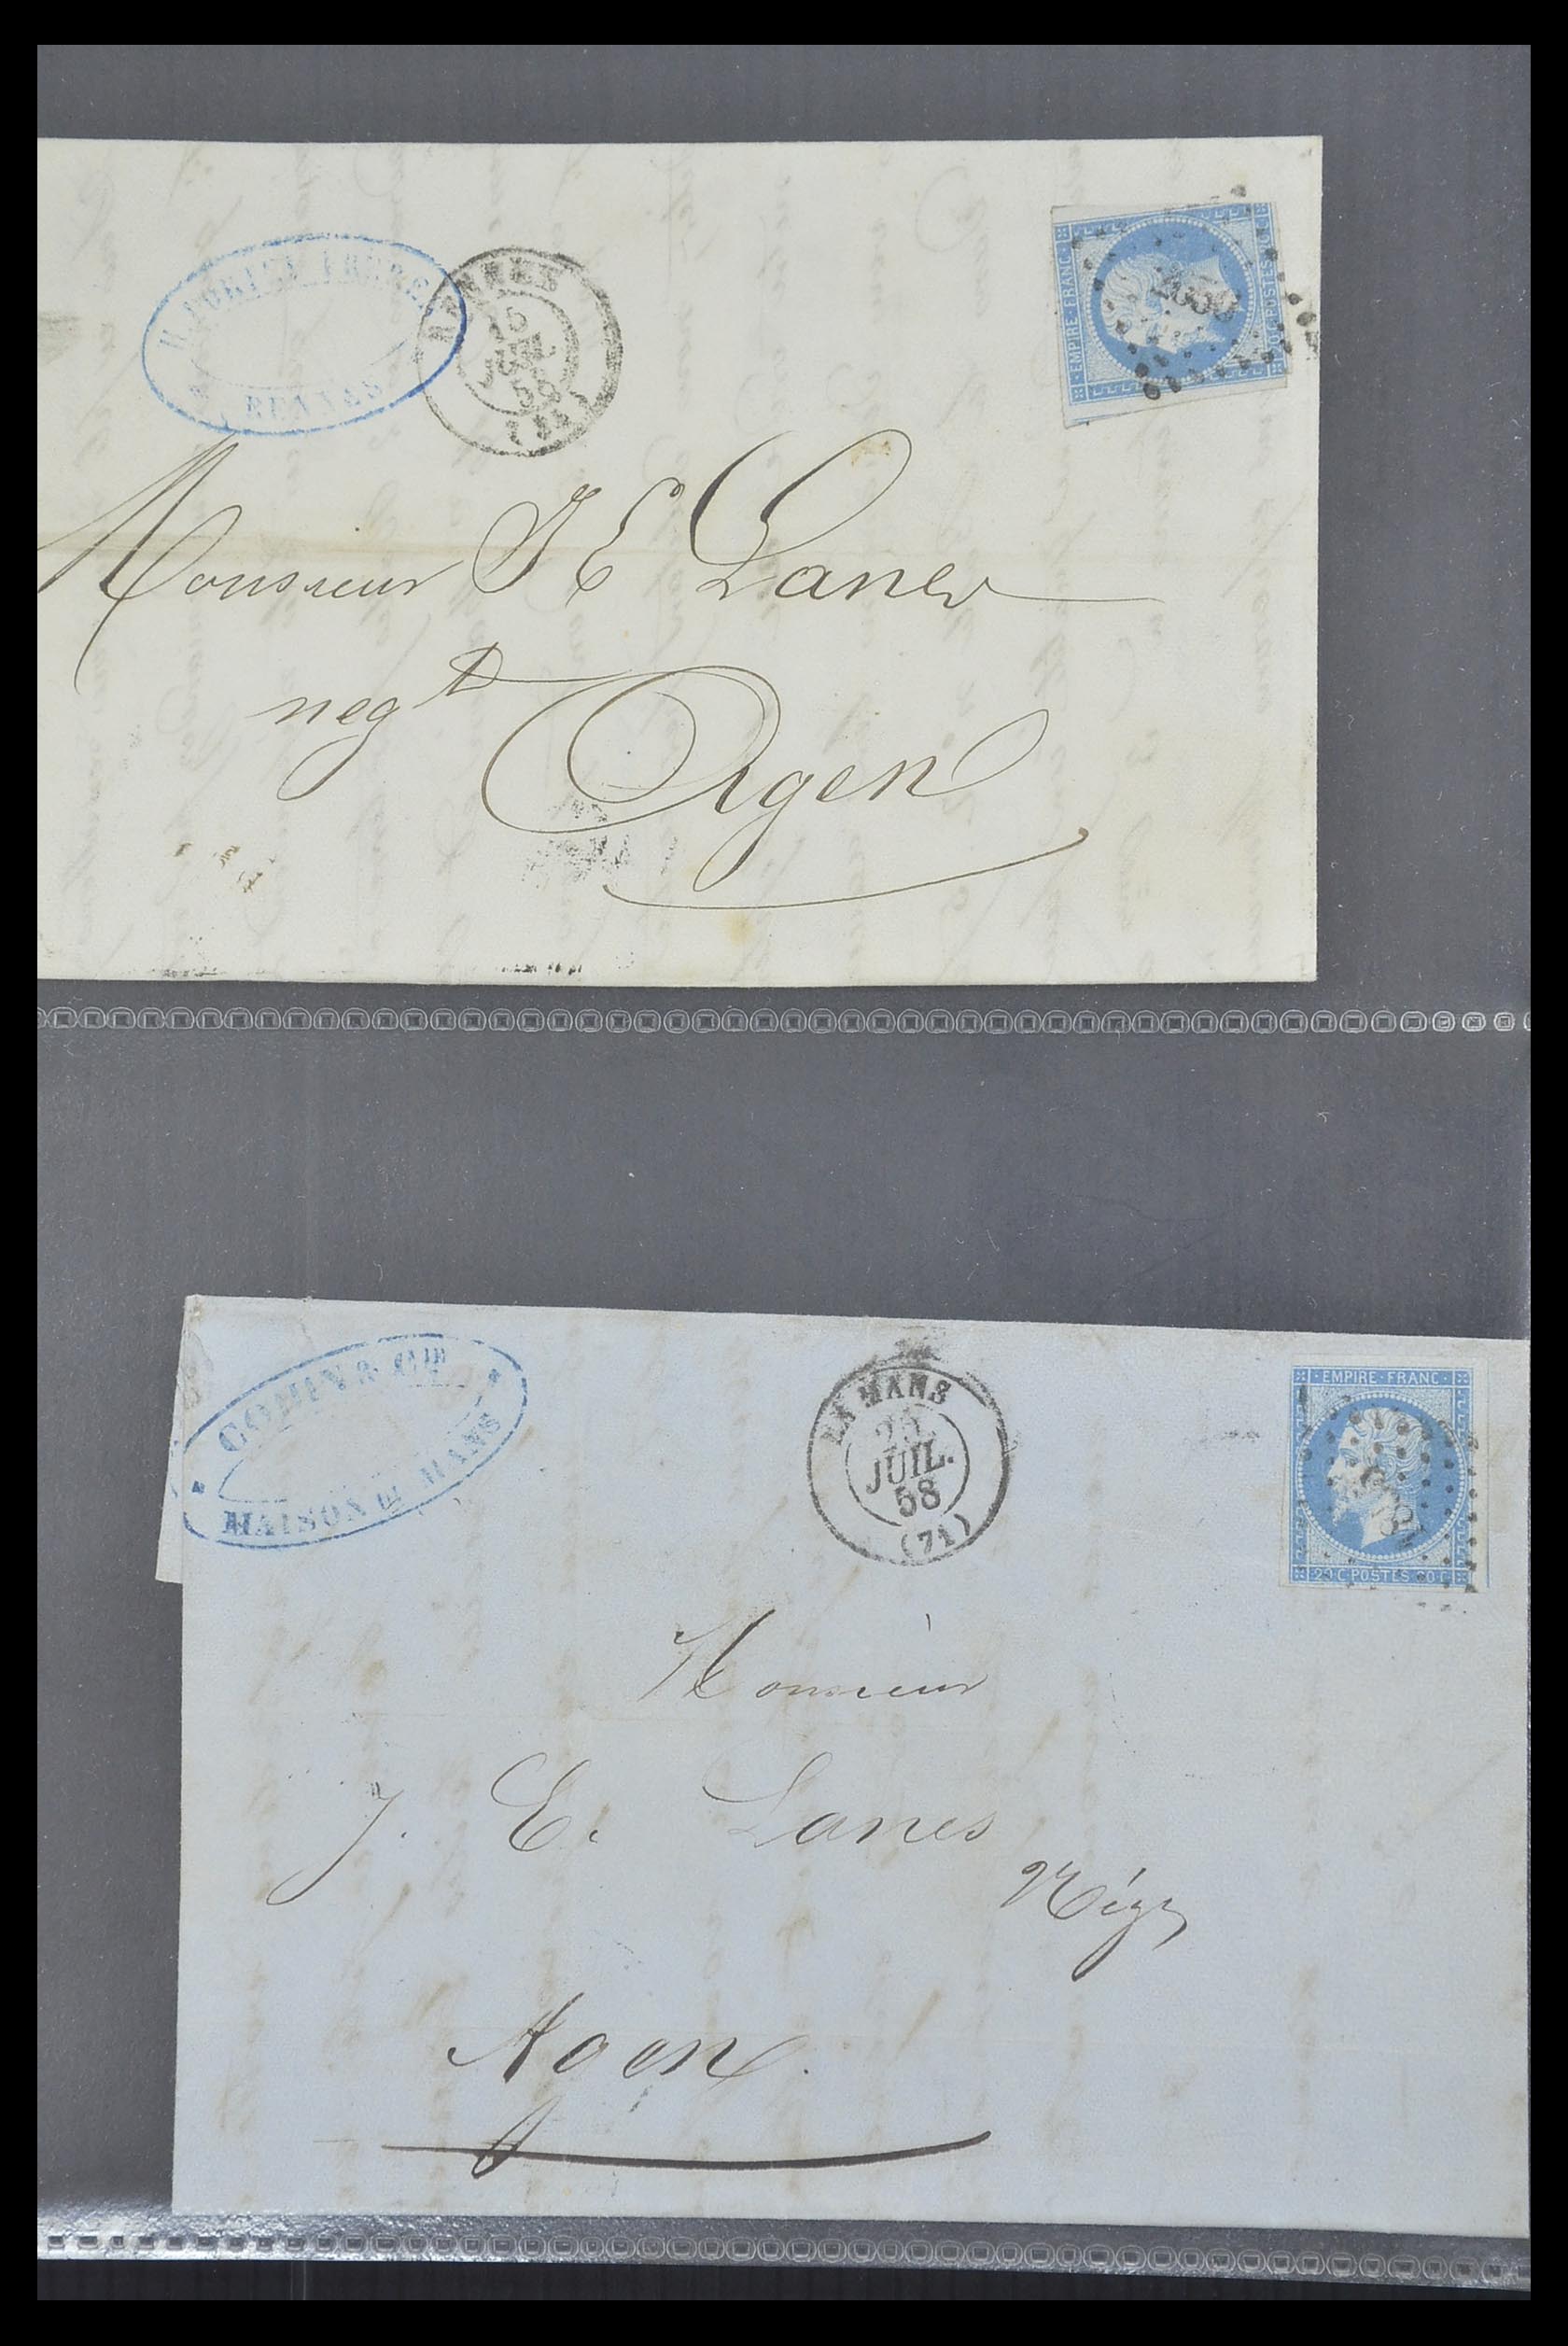 FRERE
RENNES
RENNES
15
JUIL.
58
(34)
EMPIRE · FRANC
20 C · POSTES
2659
Monsieur J E Lanes
negt
Agen
COHIN & CIE
MAISON DU MANS
LE MANS
JUIL.
58
(71)
· EMPIRE · FRANC ·
20 C POSTES 20 C
Monsieur
J. E. Lanes
Négt
Agen.